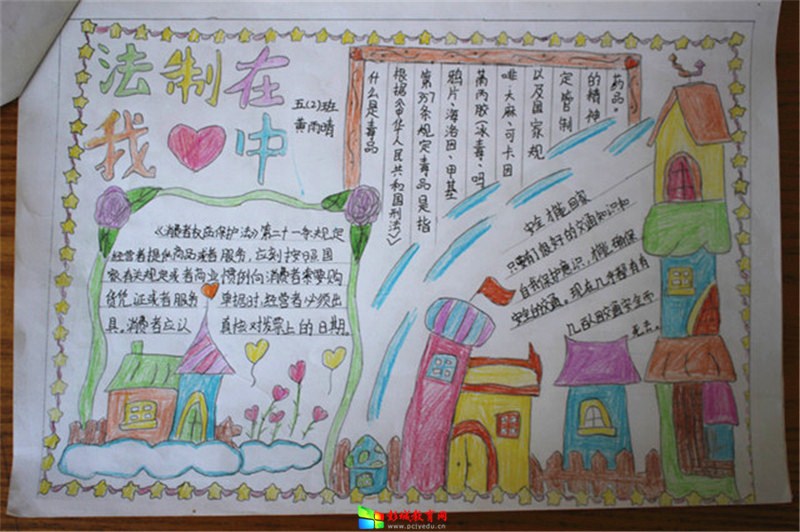 法制在
我中
五(2)班
黄雨晴
《消费者权益保护法》第二十一条规定
经营者提供商品或者服务,应到按照国
家有关规定或者商业惯例向消费者索要购
货凭证或者服务单据时,经营者必须出
具。消费者应认真核对发票上的日期。
什么是毒品
根据《中华人民共和国刑法》
第357条规定毒品是指
鸦片、海洛因、甲基
苯丙胺、冰毒、吗
啡、大麻、可卡因
以及国家规
定管制
的精神
药品。
安全才能回家
很好的交通知识和
自我保护意识,才能确保
安全的交通。现在几乎每有
几百因交通安全而
死去。
彭城教育网
www.pcjyedu.cn